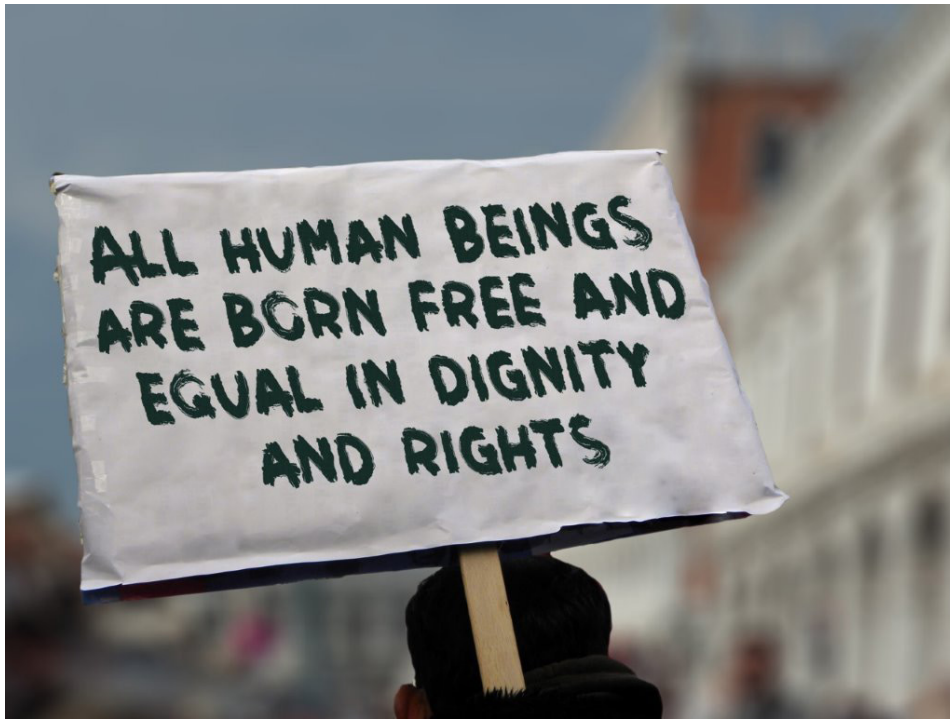 ALL HUMAN BEINGS
ARE BORN FREE AND
EQUAL IN DIGNITY
AND RIGHTS